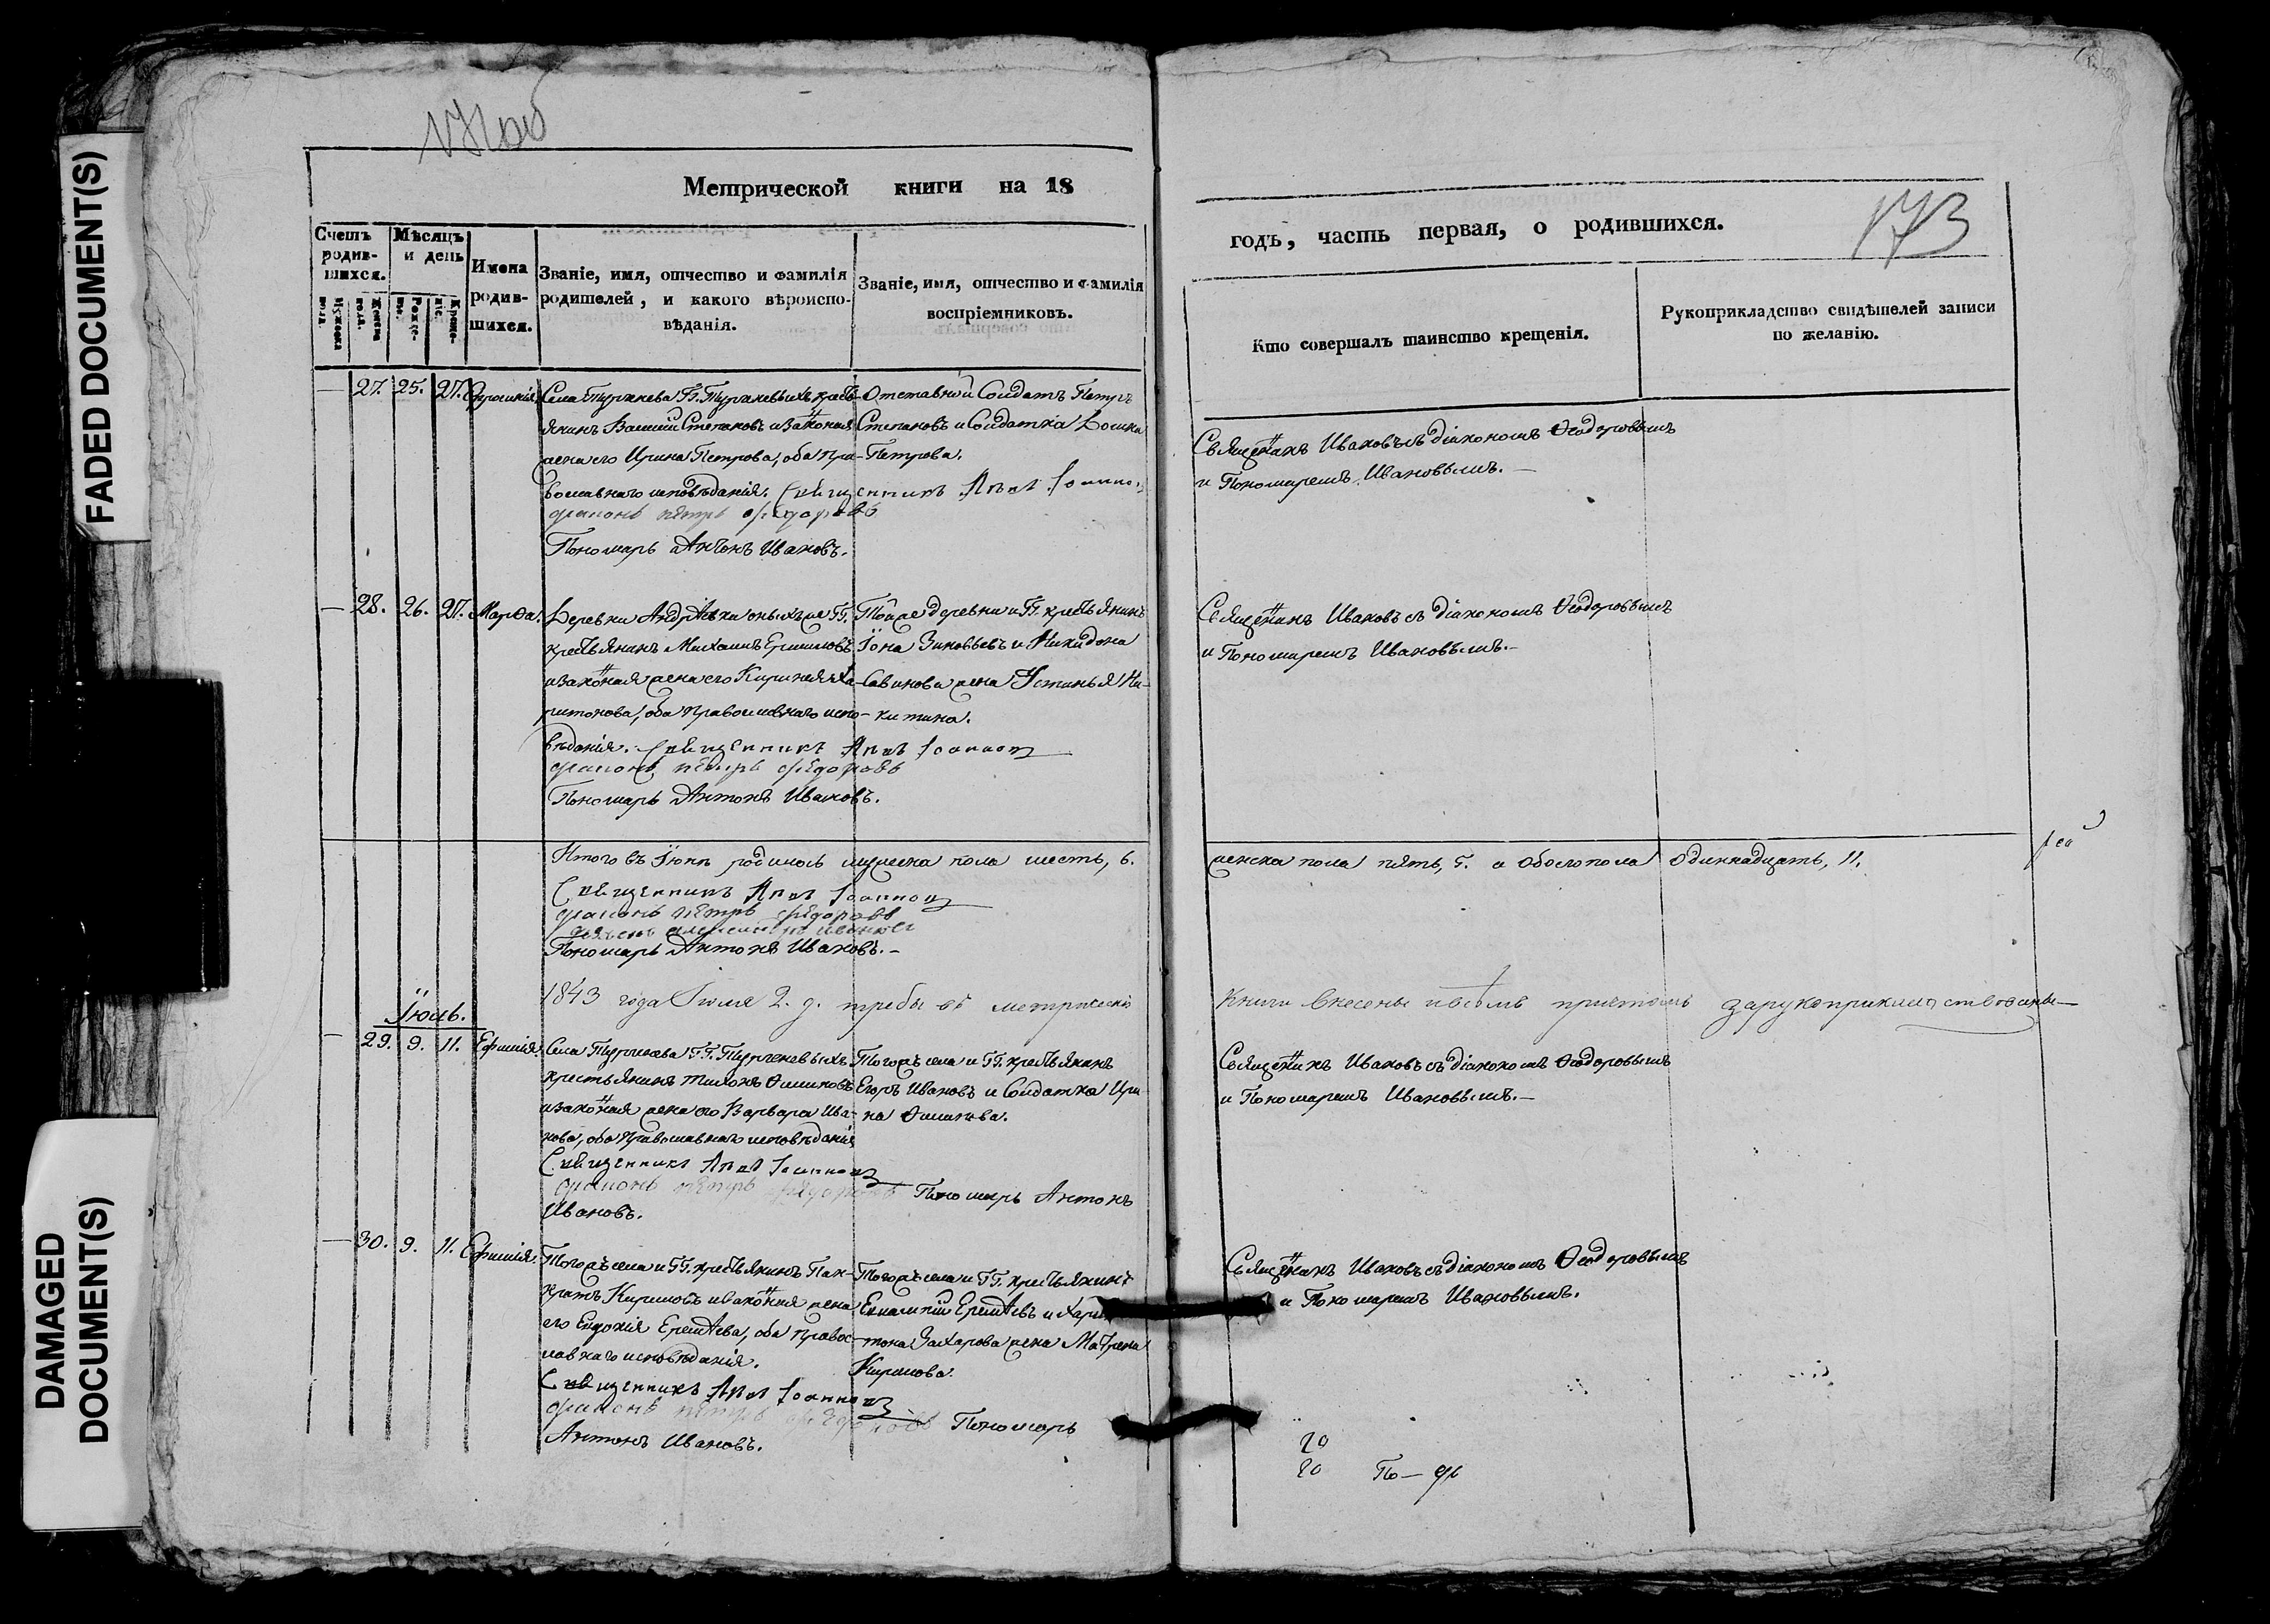 FADED DOCUMENT(S)
DAMAGED
DOCUMENT(S)
Метрической книги на 18
годъ, часть первая, о родившихся.
173
Счетъ родившихся.
Мужеска пола.
Женска пола.
Мѣсяцъ и день
Рожденіе.
Крещеніе.
Имена родившихся.
Званіе, имя, отчество и фамилія
родителей, и какого вѣроиспо-
вѣданія.
Званіе, имя, отчество и фамилія
воспріемниковъ.
Кто совершалъ таинство крещенія.
Рукоприкладство свидѣтелей записи
по желанію.
— 27. 25. 27.
Села Тургенева ГГ. Тургеневыхъ кресть-
янинъ Василій Степановъ и законная
жена его Ирина Петрова, оба пра-
вославнаго исповѣданія. Священникъ
Пономарь Антонъ Ивановъ.
Отставной Солдатъ Петръ
Степановъ и Солдатка
Петрова.
Священникъ Ивановъ съ діакономъ Ѳеодоровымъ
и Пономаремъ Ивановымъ.—
— 28. 26. 27. Марѳа.
Деревни ГГ.
крестьянинъ Михаилъ
и законная жена его Ха-
ритонова, оба православнаго испо-
вѣданія. Священникъ
діаконъ петръ федоровъ
Пономарь Антонъ Ивановъ.
Той же деревни и ГГ. крестьянинъ
Іона Зиновьевъ и
Савинова жена Устинья Ни-
китина.
Священникъ Ивановъ съ діакономъ Ѳеодоровымъ
и Пономаремъ Ивановымъ.—
Итого въ Іюнѣ родилось мужеска пола шесть, 6.
женска пола пять, 5. а обоего пола одиннадцать, 11.
Священникъ
діаконъ петръ федоровъ
Пономарь Антонъ Ивановъ.—
1843 года Іюля 2. д. требы въ метрическія
книги внесены и всѣмъ причтомъ зарукоприкладствованы—
Іюль.
— 29. 9. 11. Евфимія.
Села Тургенева ГГ. Тургеневыхъ
крестьянинъ Тихонъ Ѳилиповъ
и законная жена его Варвара Ива-
нова, оба православнаго исповѣданія
Священникъ
діаконъ петръ федоровъ Пономарь Антонъ
Ивановъ.
Тогожъ села и ГГ. крестьянинъ
Егоръ Ивановъ и Солдатка Ири-
на Ѳилипова.
Священникъ Ивановъ съ діакономъ Ѳеодоровымъ
и Пономаремъ Ивановымъ.—
— 30. 9. 11. Евфимія.
Тогожъ села и ГГ. крестьянинъ Пан-
кратъ Кириловъ и законная жена
его Евдокія Еремѣева, оба право-
славнаго исповѣданія.
Священникъ
діаконъ петръ федоровъ Пономарь
Антонъ Ивановъ.
Тогожъ села и ГГ. крестьянинъ
Евлампій Еремѣевъ и Хари-
тона Захарова жена Матрена
Кирилова.
Священникъ Ивановъ съ діакономъ Ѳеодоровымъ
и Пономаремъ Ивановымъ.